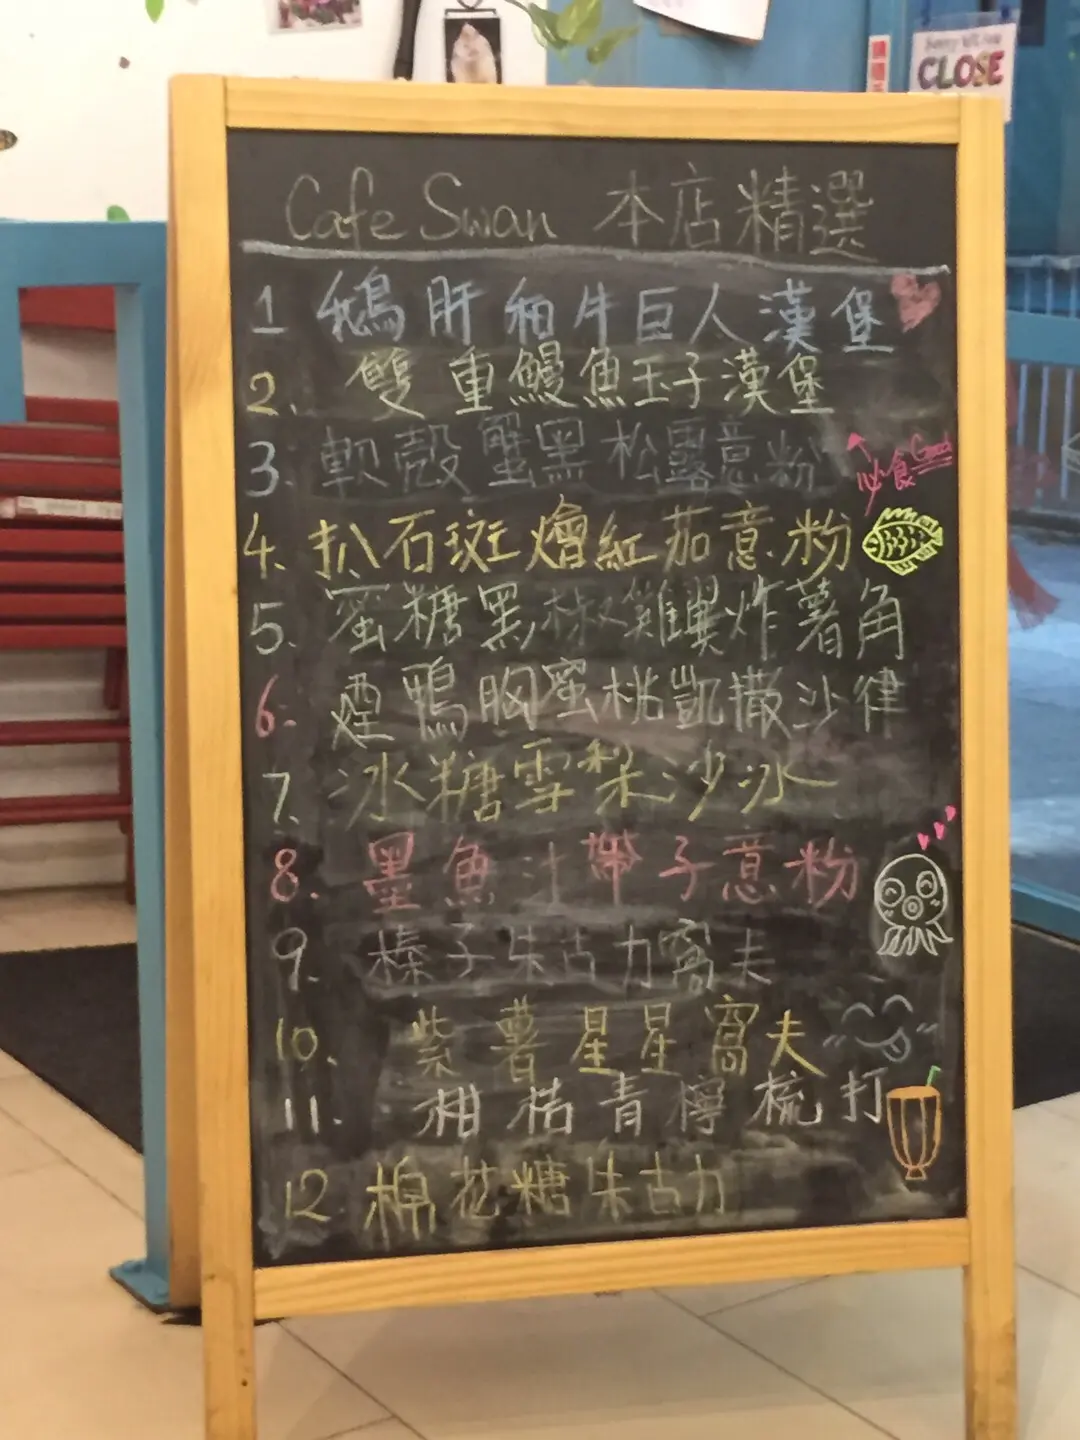 CLOSE
Cafe Swan 本店精選
1 鵝肝和牛巨人漢堡
2. 雙重鰻魚玉子漢堡
3. 軟殼蟹黑松露意粉
必食 Good
4. 扒石斑燴紅茄意粉
5. 蜜糖黑椒雞翼炸薯角
6. 煙鴨胸蜜桃凱撒沙律
7. 冰糖雪梨沙冰
8. 墨魚汁帶子意粉
9. 榛子朱古力窩夫
10. 紫薯星星窩夫
11. 柑桔青檸梳打
12 棉花糖朱古力